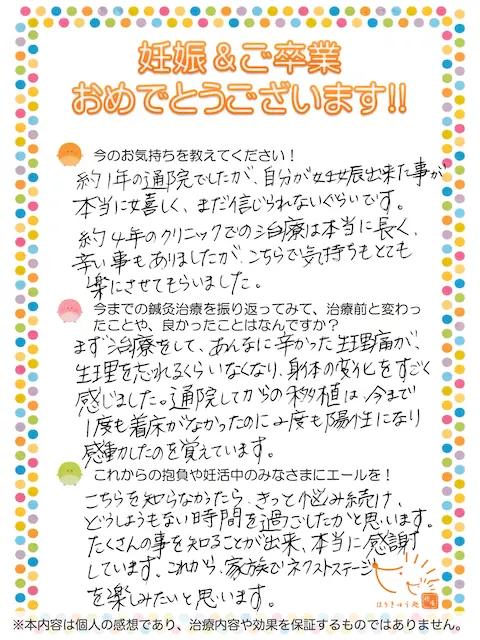 妊娠&ご卒業
おめでとうございます!!
今のお気持ちを教えてください！
約1年の通院でしたが、自分が妊娠出来た事が
本当に嬉しく、まだ信じられないぐらいです。
約4年のクリニックでの治療は本当に長く、
辛い事もありましたが、こちらで気持ちもとても
楽にさせてもらいました。
今までの鍼灸治療を振り返ってみて、治療前と変わっ
たことや、良かったことはなんですか？
まず治療をして、あんなに辛かった生理痛が、
生理を忘れるくらいなくなり、身体の変化をすごく
感じました。通院してからの移植は、今まで
1度も着床がなかったのに2度も陽性になり
感動したのを覚えています。
これからの抱負や妊活中のみなさまにエールを！
こちらを知らなかったら、きっと悩み続け、
どうしようもない時間を過ごしたかと思います。
たくさんの事を知ることが出来、本当に感謝
しています。これから、家族でネクストステージ
を楽しみたいと思います。
はりきゅう処
※本内容は個人の感想であり、治療内容や効果を保証するものではありません。